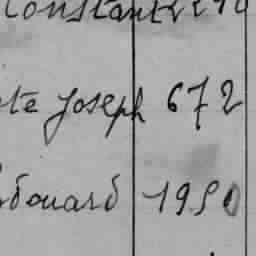 Constant 2290
te Joseph 672
Edouard 1950